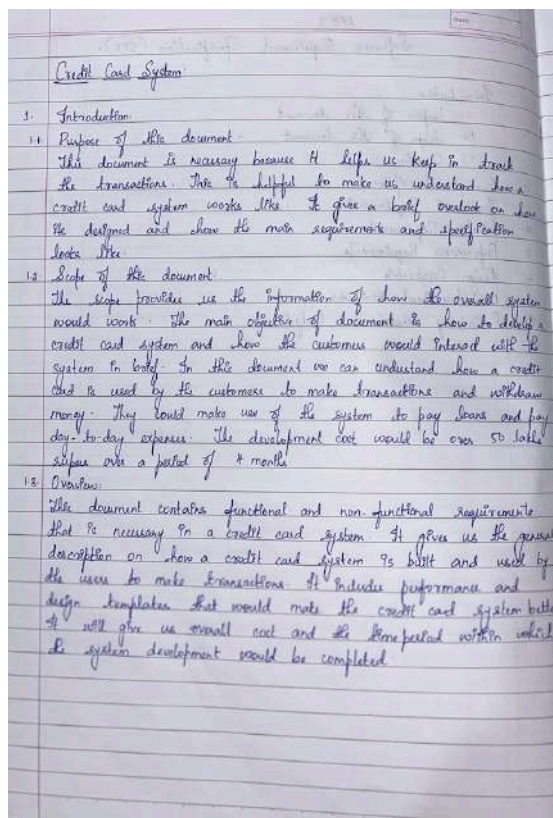 Date:
Credit Card System
1. Introduction
1.1 Purpose of this document
This document is necessary because it helps us keep in track
the transactions. This is helpful to make us understand how a
credit card system works like. It gives a brief overlook on how
its designed and how the main requirements and specification
looks like.
1.2 Scope of this document
The scope provides us the information of how the overall system
would work. The main objective of document is how to develop a
credit card system and how the customers would interact with the
system in brief. In this document we can understand how a credit
card is used by the customers to make transactions and withdraw
money. They could make use of the system to pay loans and pay
day-to-day expenses. The development cost would be over 50 lakhs
rupees over a period of 4 months
1.3 Overview:
This document contains functional and non-functional requirements
that is necessary in a credit card system. It gives us the general
description on how a credit card system is built and used by
the users to make transactions. It includes performance and
design templates that would make the credit card system better
It will give us overall cost and the time period within which
the system development would be completed